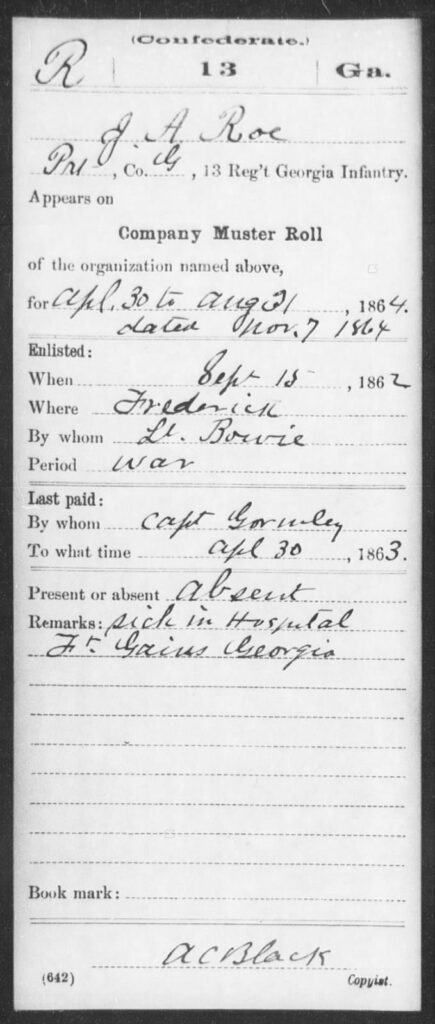 (Confederate.)
R | 13 | Ga.
J. A. Roe
Pvt, Co. G, 13 Reg't Georgia Infantry.
Appears on
Company Muster Roll
of the organization named above,
for Apl. 30 to Aug 31, 1864.
dated Nov. 7 1864
Enlisted:
When Sept 15, 1862
Where Frederick
By whom Lt. Bowie
Period war
Last paid:
By whom Capt Gormley
To what time Apl 30, 1863.
Present or absent absent
Remarks: sick in Hospital
Ft. Gains Georgia
Book mark:
A C Black
(642) Copyist.